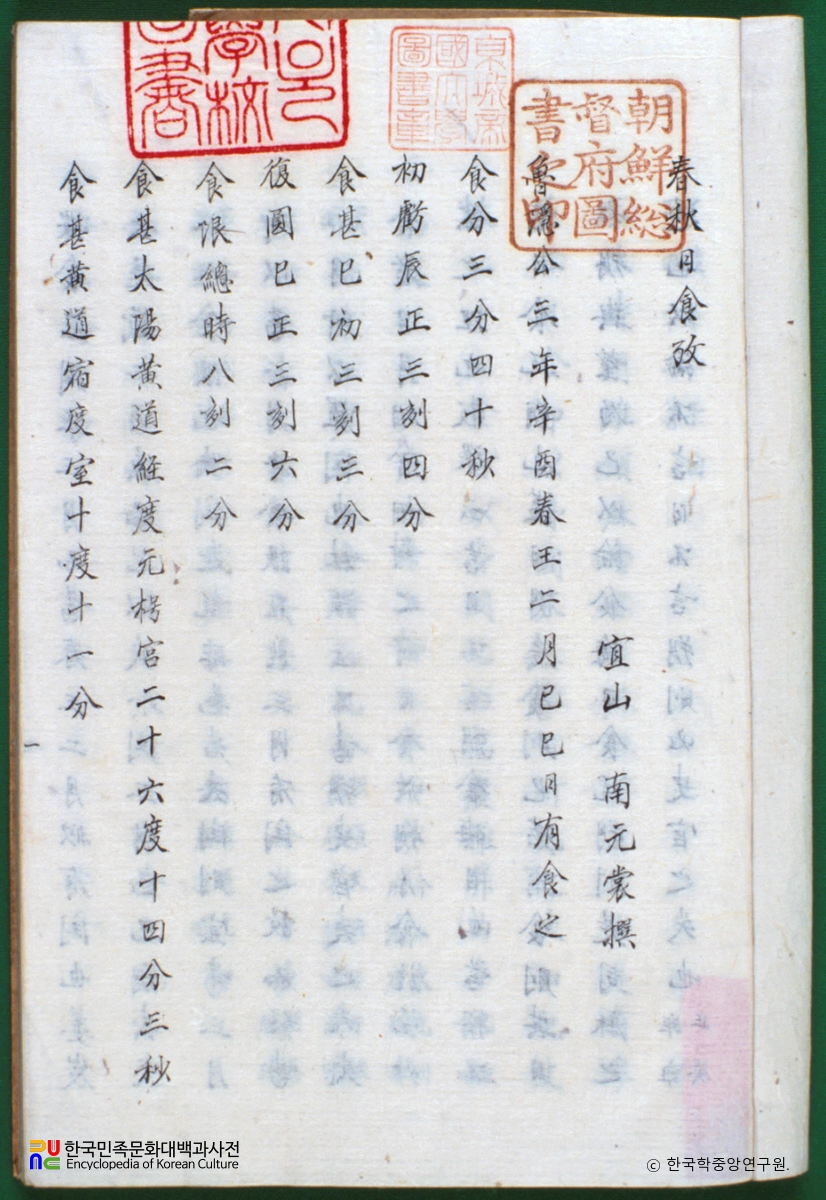 春秋日食攷
宜山 南元裳撰
魯隱公三年辛酉春王二月己巳日有食之
食分三分四十秒
初虧辰正三刻四分
食甚巳初三刻三分
復圓巳正三刻六分
食限總時八刻二分
食甚太陽黃道經度元枵宮二十六度十四分三秒
食甚黃道宿度室十度十一分
朝鮮総
督府圖
書之印
學校
書
한국민족문화대백과사전
Encyclopedia of Korean Culture
© 한국학중앙연구원.